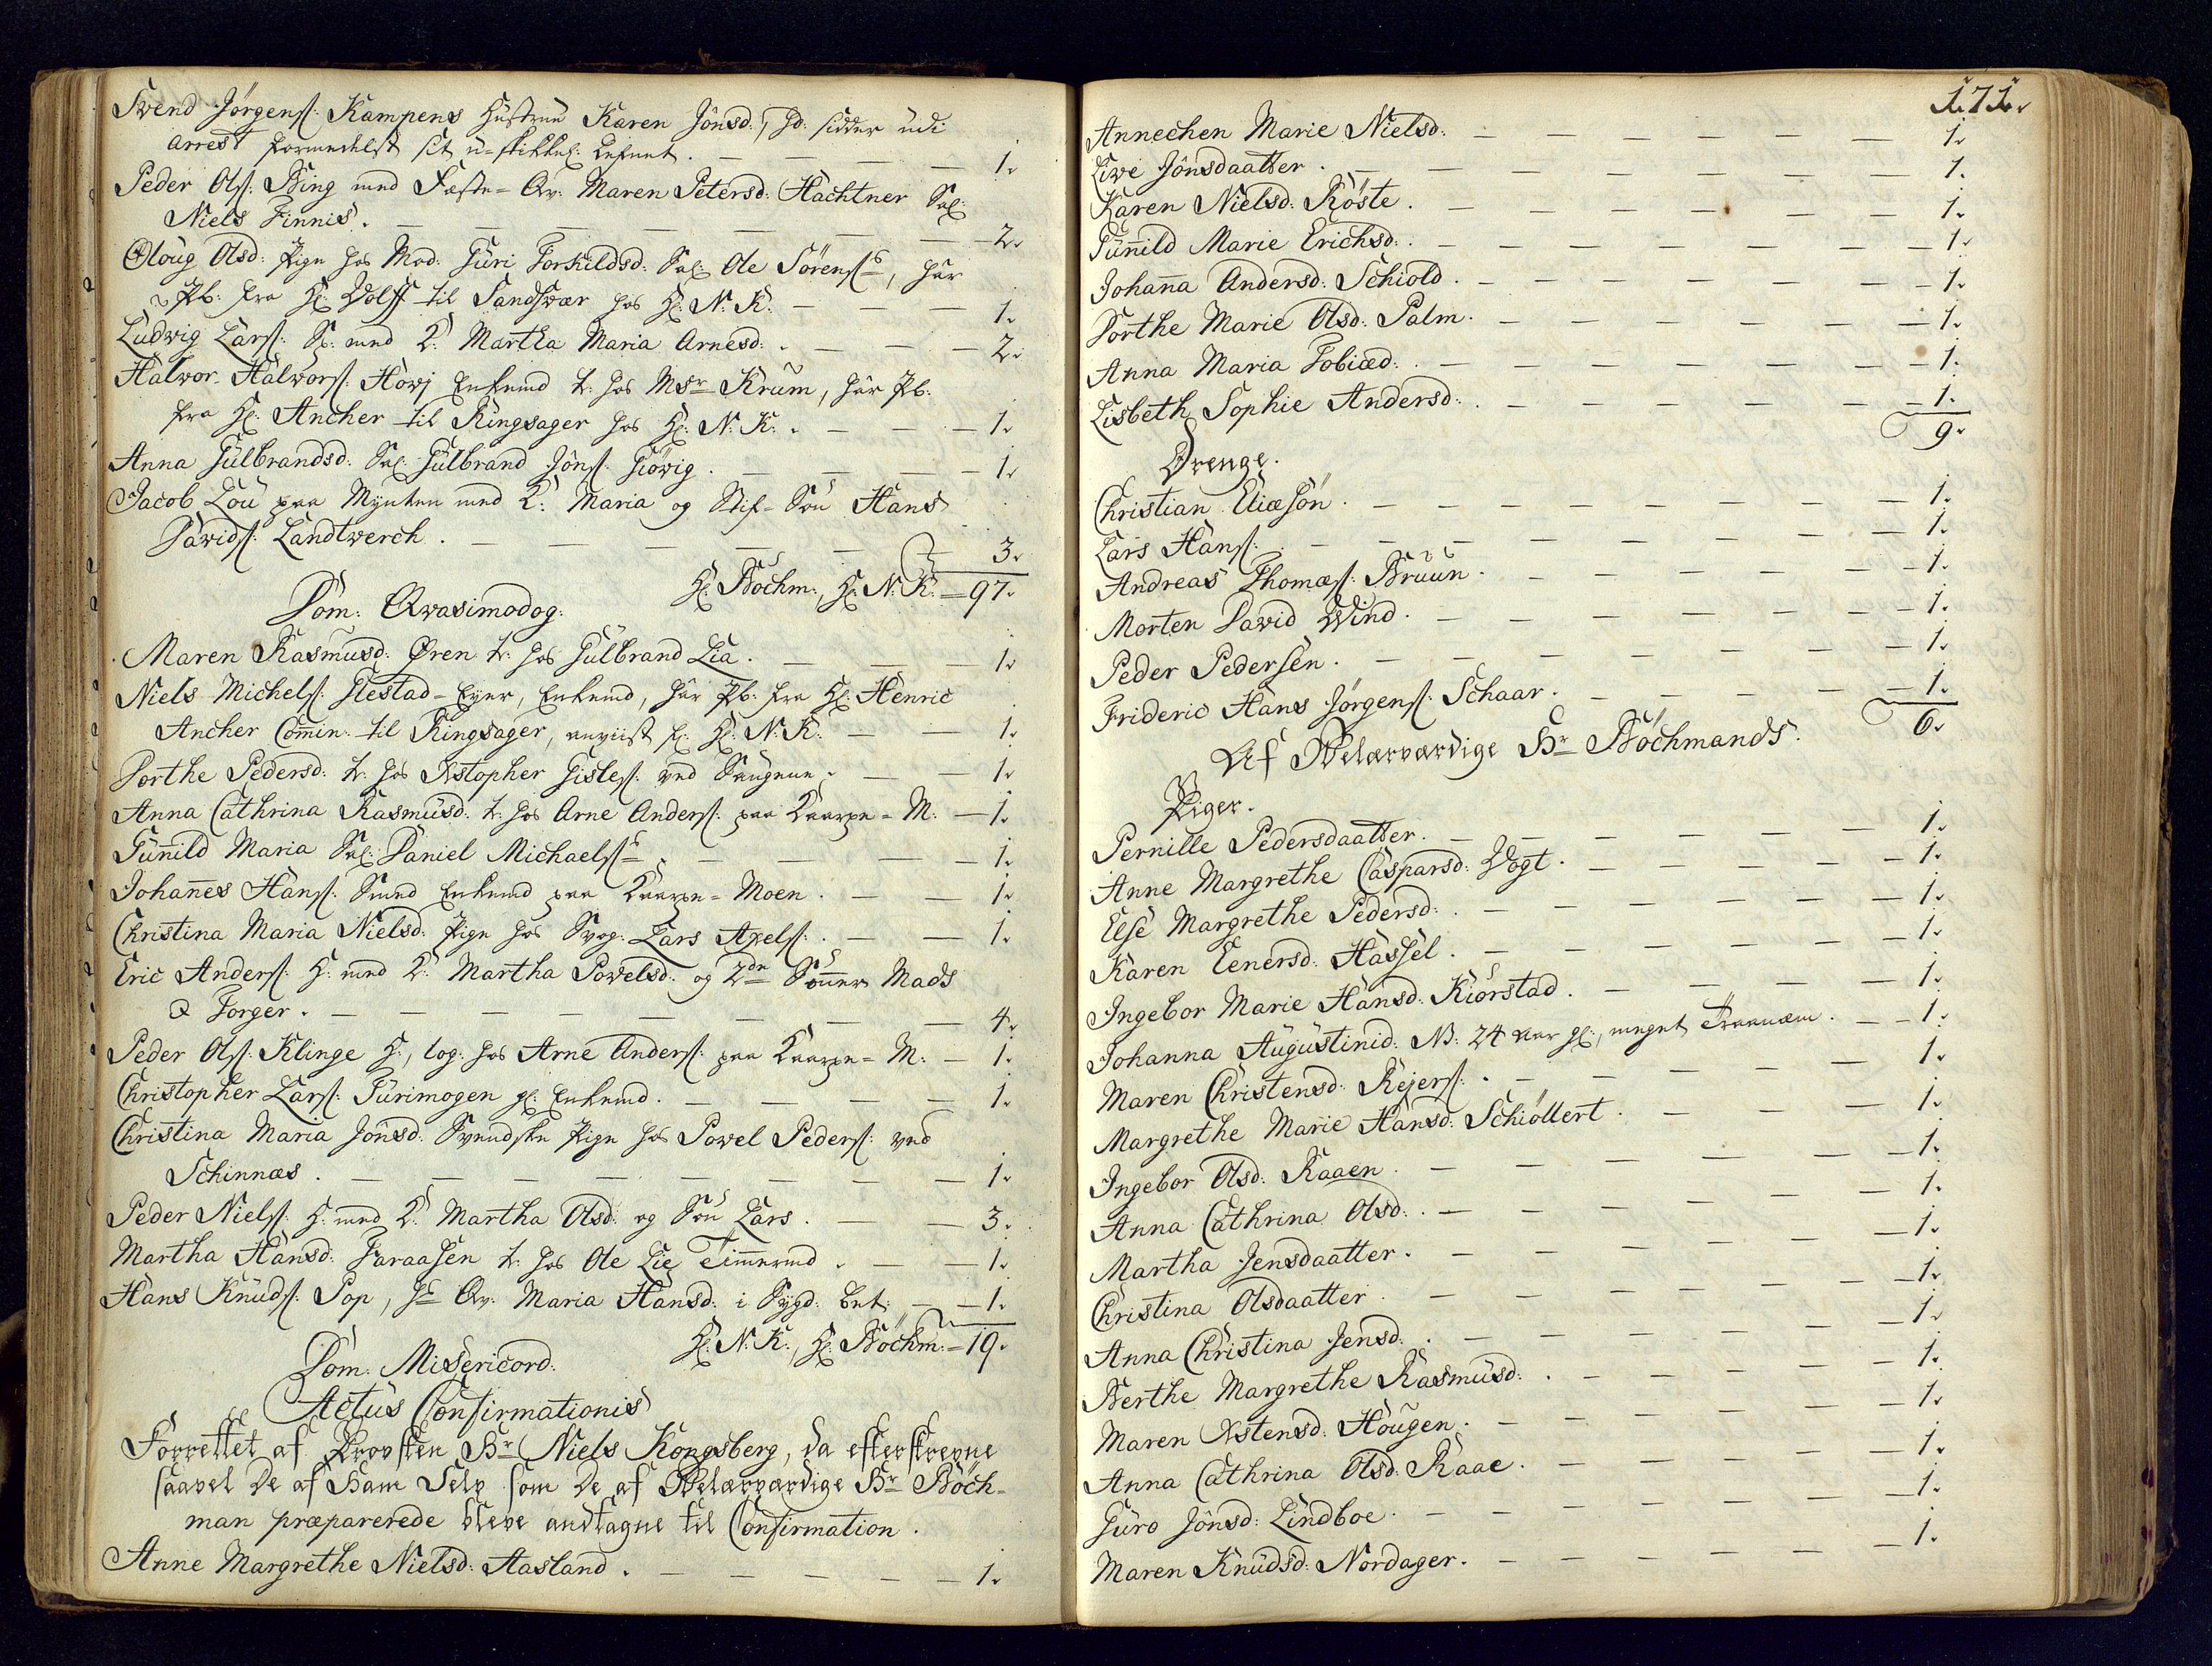 Svend Jørgens: Kampens Hustrue Karen Jönsd:, hd: sidder udi
Arrest formedelst sit u-skikkel: Lefnet. — — — — 1.
Peder Ols: Bing med Fæste-Qv: Maren Petersd: Hachtner Sal:
Niels Finnis. — — — — — — — 2.
Oloug Olsd: Pige hos Mad. Guri Torkildsd: Sal: Ole Sörens:, har
Pb: fra Hr: Wolff til Sandsvær hos Hr: N: K: — — — 1.
Ludvig Lars: S: med K: Martha Maria Arnesd: . — — — 2.
Halvor Halvors: Hovj Enkemd t: hos Msr Krum, har Pb:
fra Hr: Ancher til Ringsager hos Hr: N: K: . — — — 1.
Anna Gulbrandsd: Sal: Gulbrand Jöns: Giövig. — — — — 1.
Jacob Lou paa Mynten med K: Maria og Stif-Sön Hans
Davids: Landtverch. — — — — — — 3.
Hr: Böchm:, Hr: N: K: = 97.
Dom: Qvasimodog:
Maren Rasmusd: Øren t: hos Gulbrand Lia. — — — 1.
Niels Michels: Flestad-Eyer, Enkemd, har Pb: fra Hr: Henric
Ancher Comin: til Ringsager, anviist fr: Hr: N: K: — — 1.
Dorthe Pedersd: t: hos Xstopher Gisles: ved Saugene. — — 1.
Anna Cathrina Rasmusd: t: hos Arne Anders: paa Kaarpe-M: — 1.
Gunild Maria Sal: Daniel Michaels: . — — — — 1.
Johannes Hans: Smed Enkemd paa Kaarpe-Moen. — — 1.
Christina Maria Nielsd: Pige hos Svog: Lars Axels: . — — 1.
Eric Anders: H: med K: Martha Povelsd: og 2de Sönner Mads
& Torger. — — — — — — — — 4.
Peder Ols: Klinge H:, log: hos Arne Anders: paa Kaarpe-M: — 1.
Christopher Lars: Turimogen gl: Enkemd. — — — — 1.
Christina Maria Jönsd: Svendske Pige hos Povel Peders: ved
Schinnæs. — — — — — — — — 1.
Peder Niels: H: med K: Martha Olsd: og Sön Lars. — — 3.
Martha Hansd: Faraasen t: hos Ole Lie Timmermd. — — 1.
Hans Knuds: Pop, hs Qv: Maria Hansd: i Sygd: bet: — — 1.
Hr: N: K:, Hr: Böchm: = 19.
Dom: Misericord:
Actus Confirmationis
Forrettet af Provsten Hr Niels Kongsberg, da efterskrevne
saavel de af Ham Selv som de af Velærværdige Hr Böch-
man præparerede bleve andtagne til Confirmation.
Anne Margrethe Nielsd: Aasland. — — — — — 1.
171.
Annechen Marie Nielsd: — — — — — — 1.
Live Jönsdaatter. — — — — — — — 1.
Karen Nielsd: Röste. — — — — — — 1.
Gunild Marie Erichsd: . — — — — — — 1.
Johanna Andersd: Schiold. — — — — — — 1.
Dorthe Marie Olsd: Palm. — — — — — — 1.
Anna Maria Tobiæd: . — — — — — — 1.
Lisbeth Sophie Andersd: . — — — — — 1.
9.
Drenge.
Christian Eliæsön. — — — — — — — 1.
Lars Hans: . — — — — — — — 1.
Andreas Thomæs: Bruun. — — — — — 1.
Morten David Wind. — — — — — — 1.
Peder Pedersen. — — — — — — — 1.
Frideric Hans Jörgens: Schaar. — — — — — 1.
6.
Af Velærværdige Hr Böchmands.
Piger.
Pernille Pedersdaatter. — — — — — — 1.
Anne Margrethe Caspersd: Vogt. — — — — — 1.
Else Margrethe Pedersd: . — — — — — — 1.
Karen Eenersd: Hassel. — — — — — — 1.
Ingebor Marie Hansd: Kiörstad. — — — — — 1.
Johanna Augustinid: NB: 24 aar gl:, meget Traanæm. — — 1.
Maren Christensd: Rejers: . — — — — — 1.
Margrethe Marie Hansd: Schiöllert. — — — — 1.
Ingebor Olsd: Raaen. — — — — — — 1.
Anna Cathrina Olsd: . — — — — — — 1.
Martha Jensdaatter. — — — — — — 1.
Christina Olsdaatter. — — — — — — 1.
Anna Christina Jensd: . — — — — — — 1.
Berthe Margrethe Rasmusd: . — — — — — 1.
Maren Xstensd: Hougen. — — — — — — 1.
Anna Cathrina Olsd: Raae. — — — — — 1.
Guro Jönsd: Lindboe. — — — — — — 1.
Maren Knudsd: Nordager. — — — — — — 1.